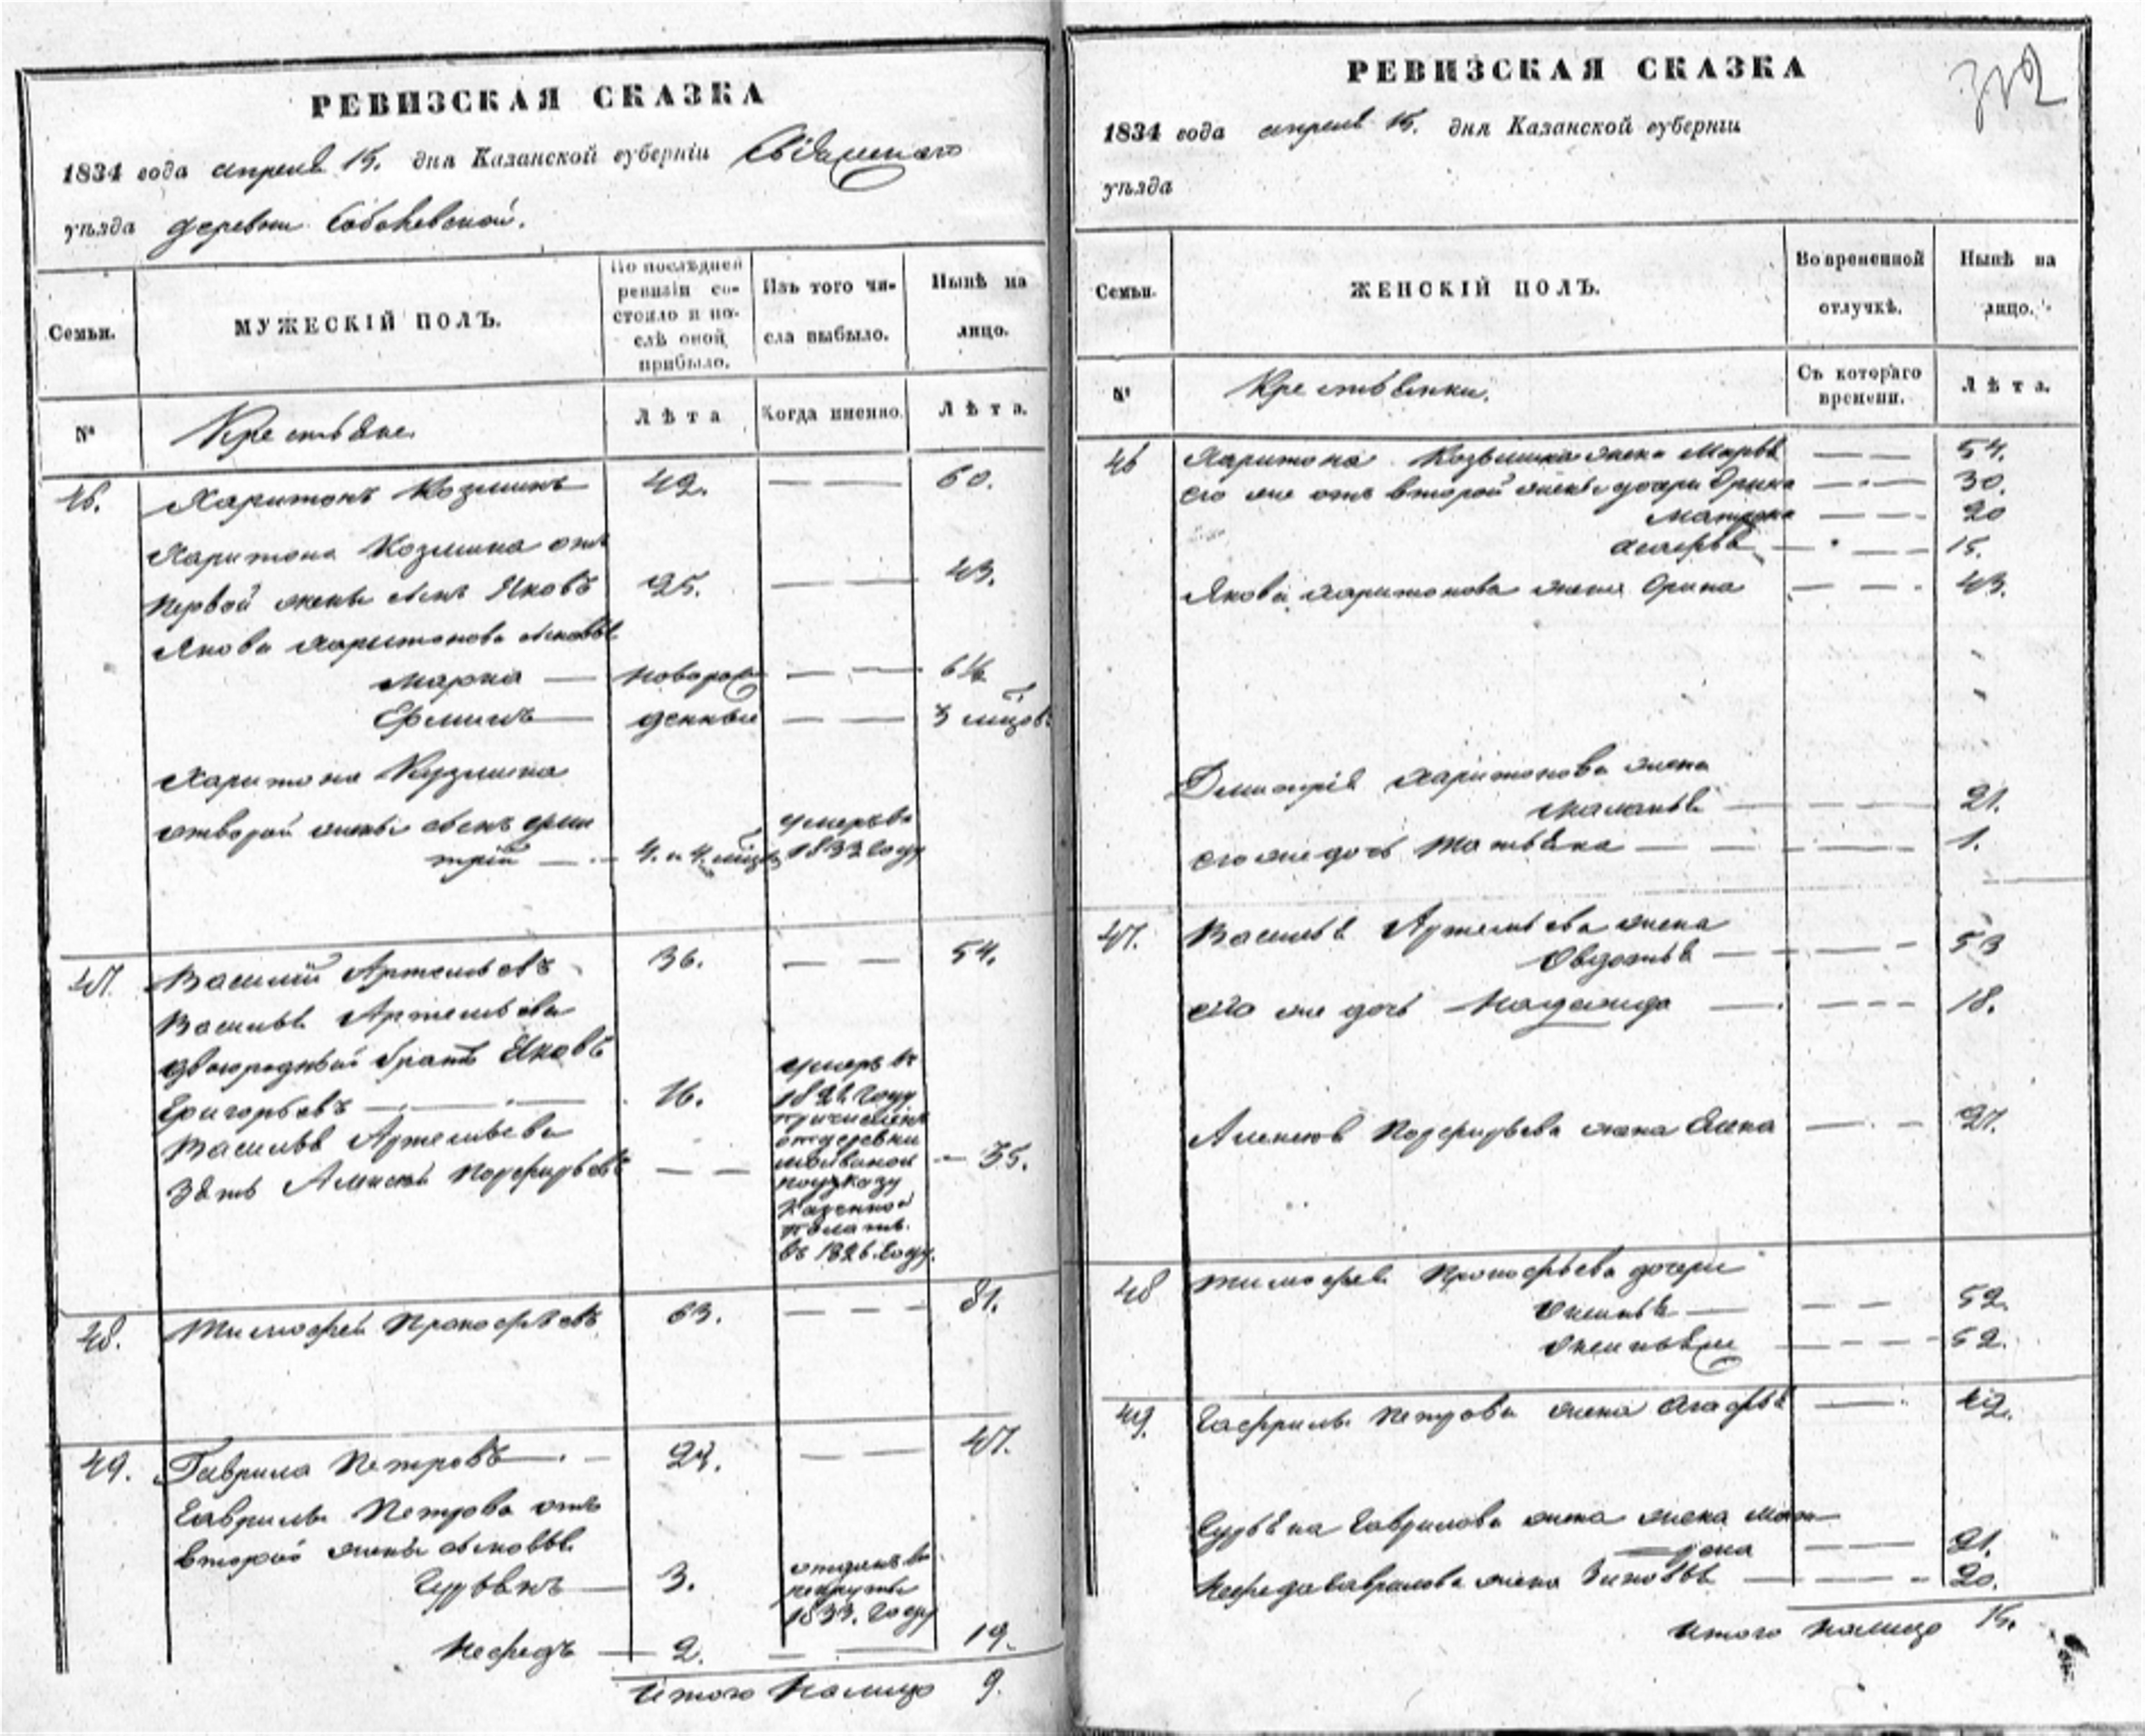 РЕВИЗСКАЯ СКАЗКА
1834 года апреля 15. дня Казанской губерніи
уѣзда деревни
Семьи.
МУЖЕСКІЙ ПОЛЪ.
По послѣдней ревизіи состояло и послѣ оной прибыло.
Изъ того числа выбыло.
Нынѣ на лицо.
№
Крестьяне.
Лѣта
Когда именно.
Лѣта.
46. Харитонъ Козминъ 42. — — 60.
Харитона Козмина отъ
первой жены сынъ Яковъ 25. — — 43.
Якова Харитонова сыновья
Марка — новорож — — 6½
— денные — — 3 мѣсцов.
Харитона Кузмина
отвторой жены сынъ Дми
трій — 4. и 4. мѣсц. умеръ въ 1833 году
47 Василий Артемьевъ 36. — — 54.
Василья Артемьева
двоюродный братъ Яковъ
Григорьевъ — 16. умеръ въ
Василья Артемьева
Зять Алексей — — причисленъ отдеревни поуказу Казенной Полаты въ 1826. году. — 35.
48. Тимофей Прокофьевъ 63. — — 81.
49. Гаврила Петровъ — 29. — — 47.
Гаврилы Петрова отъ
второй жены сыновья
3. отданъ въ рекруты 1833. году
Нефедъ — 2. — — 19.
Итого налицо 9.
РЕВИЗСКАЯ СКАЗКА
1834 года апреля 15. дня Казанской губерніи
уѣзда
Семьи.
ЖЕНСКІЙ ПОЛЪ.
Во временной отлучкѣ.
Нынѣ на лицо.
№
Крестьянки.
Съ котораго времени.
Лѣта.
46 Харитона Козьмина жена Марья — — 54.
его же отъ второй жены дочери Орина — — 30.
Матрена — — 20
— — 15.
Якова Харитонова жена Орина — — 43.
Дмитрія Харитонова жена
Маланья — — 21.
его же дочь Татьяна — — 1.
47. Василья Артемьева жена
Овдотья — — 53
его же дочь Надежда — — 18.
Алексея жена Елена — — 27.
48 Тимофея Прокофьева дочери
— — 52.
— — 52.
49. Гаврилы Петрова жена Агафья — — 42.
Гаврилова жена Мат
рона — — 21.
Нефеда Гаврилова жена Зиновья — — 20.
Итого налицо 15.